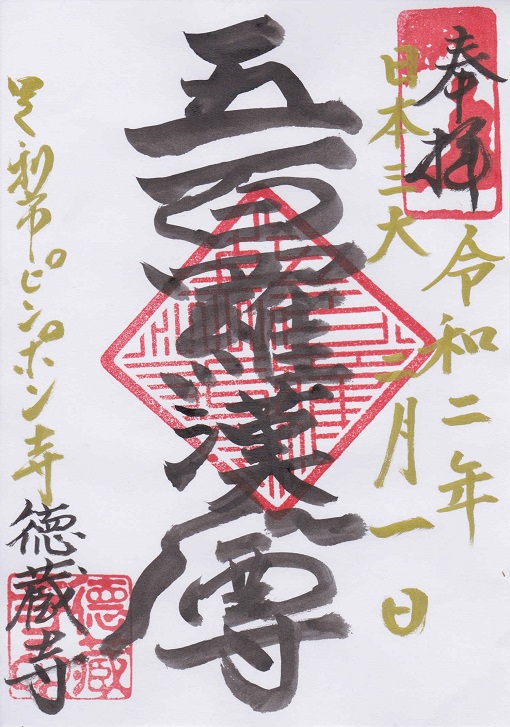 奉拝
令和二年
日本三大
二月一日
五百羅漢尊
足利市ピンポン寺
徳蔵寺
徳蔵寺